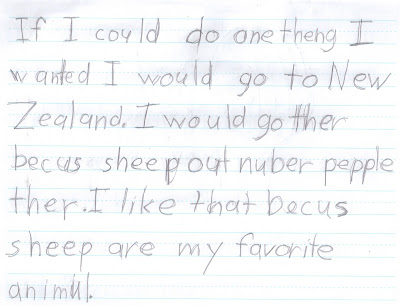 If I could do one theng I
wanted I would go to New
Zealand. I would go ther
becus sheep out nuber pepple
ther. I like that becus
sheep are my favorite
animul.